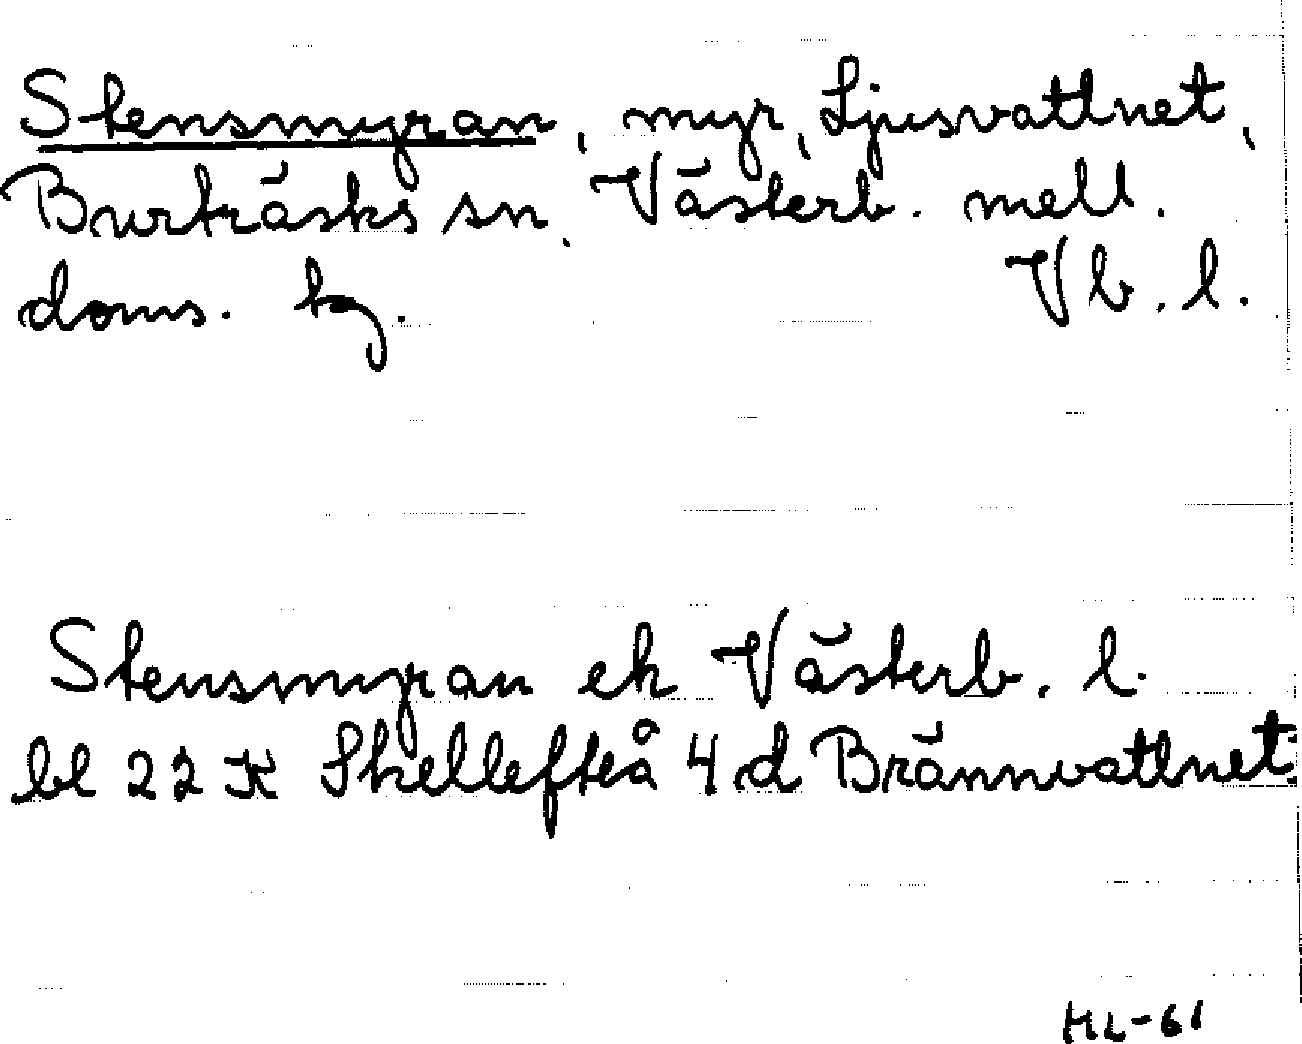 Stensmyran, myr, Ljusvattnet,
Burträsks sn, Västerb. mell.
doms. tg. Vb. l.
Stensmyran ek Västerb. l.
bl 22 K Skellefteå 4 d Brännvattnet.
HL-61